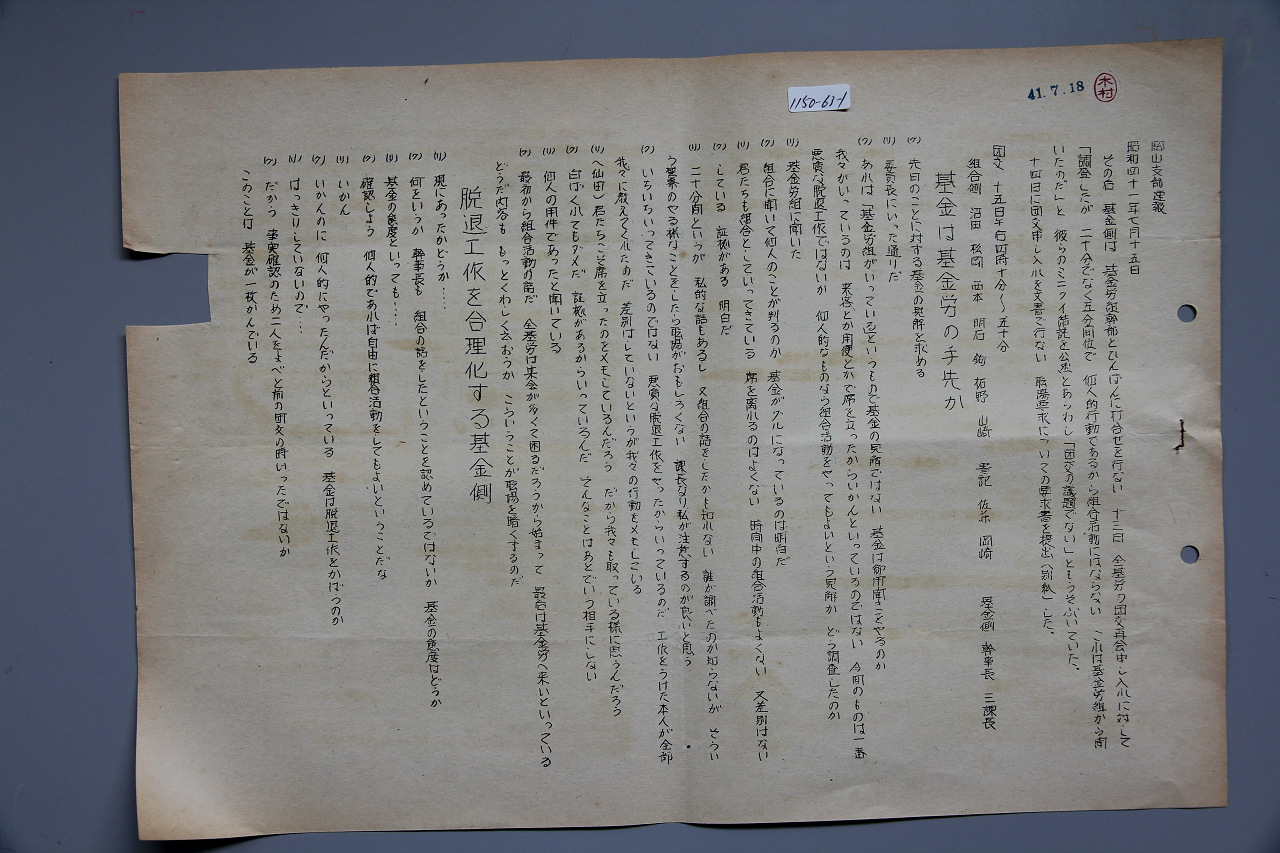 木村
41.7.18
1150-63-1
岡山支部速報
昭和四十一年七月十五日
その后 基金側は 基金労組幹部とひんぱんに打合せを行ない 十三日 全基労の団交再会申し入れに対して
「調査したが 二十分でなく五分同位で 個人的行動であるから組合活動にはならない これは基金労組から聞
いたのだ」と 彼らのミニクイ結託を公然とあらわし「団交の議題でない」ともうそぶいていた。
十四日に団交申し入れを文書で行ない 職場要求についての要求書を提出(別紙)した。
団交 十五日午右四時十分～五十分
組合側 沼田 松岡 西本 明石 鉤 祐野 山崎 書記 佐藤 岡崎 基金側 幹事長 三課長
基金は基金労の手先か
(ク) 先日のことに対する基金の見解を求める
(リ) 委員長にいった通りだ
(ク) あれは「基金労組がいっている」というもので基金の見解ではない 基金は御用聞きことやるのか
我々がいっているのは 来客とか用便とかで席を立ったからいかんといっているのではない 今回のものは一番
悪質な脱退工作ではないか 個人的なものなら組合活動をやってもよいという見解か どう調査したのか
(リ) 基金労組に聞いた
(ク) 組合に聞いて個人のことが判るのか 基金がグルになっているのは明白だ
(リ) 君たちも組合としていってきている 席を離れるのはよくない 時間中の組合活動もよくない 又差別はない
(ク) している 証拠がある 明白だ
(リ) 二十分間というが 私的な話もあるし 又組合の話をしたかも知れない 誰が調べたのか知らないが そうい
う要素のやる様なことをしたら職場がおもしろくない 課長なり私が注意するのが良いと思う
(ク) いろいちいってきているのではない 悪質な脱退工作をやったからいっているのだ 工作をうけた本人が全部
我々に教えてくれたのだ 差別はしていないというが我々の行動をメモしている
(リ) へ仙田)君たちこそ席を立ったのをメモしているんだろう だから我々も取っている様に思うんだろう
(ク) 白ばくれてもダメだ 証拠があるからいっているんだ そんなことはあとでいう相手にしない
(リ) 個人の用件であったと聞いている
(ク) 最初から組合活動の話だ 全基労は集会が多くて困るだろうから始まって 最后は基金労へ来いといっている
どうだ内容も もっとくわしく云おうか こういうことが職場を暗くするのだ
脱退工作を合理化する基金側
(リ) 現にあったかどうか……
(ク) 何をいうか 幹事長も 組合の話をしたということを認めているではないか 基金の態度はどうか
(リ) 基金の態度といっても……
(ク) 確認しよう 個人的であれば自由に組合活動をしてもよいということだな
(リ) いかん
(ク) いかんのに 個人的にやったんだからといっている 基金は脱退工作をかばうのか
(リ) はっきりしていないので…
(ク) だから 事実確認のため二人をよべと前の団交の時いったではないか
このことは 基金が一枚かんでいる